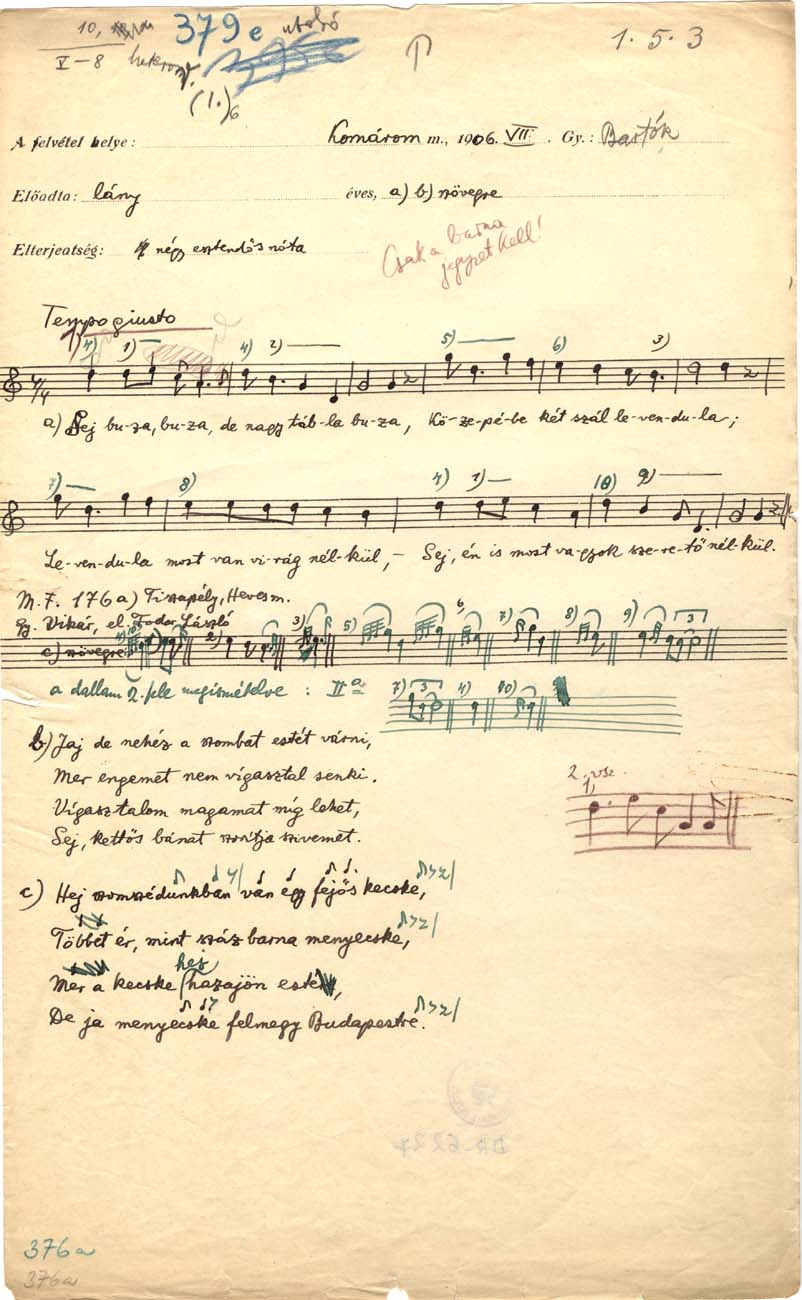 10,
379e utolsó
1. 5. 3
V-8
(1.)6
A felvétel helye: Komárom m., 1906. VII. Gy.: Bartók
Előadta: lány éves, a) b) szövegre
Elterjeatség: négy esztendős nóta
Csak a barna
jegyzet kell!
Tempo giusto
1) 4) 1) 4) 2) 5) 6) 3)
4/4
a) Sej bu-za, bu-za, de nagy táb-la bu-za, Kö-ze-pé-be két szál le-ven-du-la;
7) 8) 4) 1) 10) 9)
Le-ven-du-la most van vi-rág nél-kül, – Sej, én is most va-gyok sze-re-tő nél-kül.
M.F. 176a) Tiszapély, Heves m.
Gy. Vikár, el. Fodor László
c) szövegre 2) 3) 5) 6 7) 8) 9) 3
a dallam 2. fele megismételve : IIa 7) 3 4) 10)
b) Jaj de nehéz a szombat estét várni,
Mer engemet nem vígasztal senki.
Vígasztalom magamat míg lehet,
Sej, kettős bánat szorítja szivemet.
2. vsz.
1,
c) Hej szomszédunkban ván égy fejős kecske,
Többet ér, mint száz barna menyecske,
hej
Mer a kecske hazajön esté,
De ja menyecske felmegy Budapestre.
376a
376a